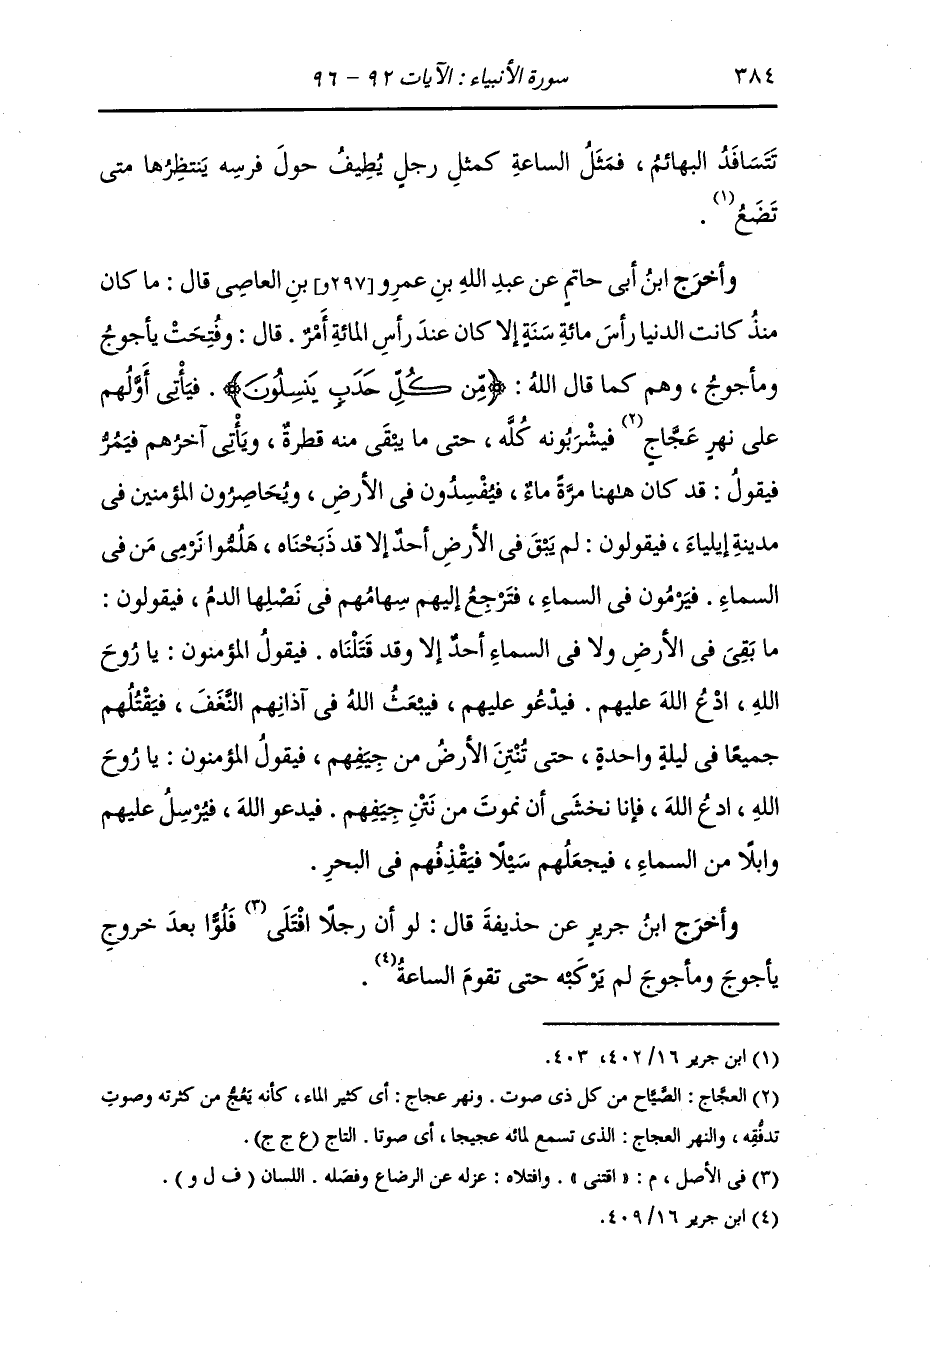 ٣٨٤ سورة الأنبياء : الآيات ٩٢ - ٩٦
تَتَسَافَدُ البهائمُ ، فمَثَلُ الساعةِ كمثلِ رجلٍ يُطِيفُ حولَ فرسِه يَنتظِرُها متى
تَضَعُ(١) .
وأخرَج ابنُ أبى حاتمٍ عن عبدِ اللهِ بنِ عمرِو [٢٩٧و] بنِ العاصِى قال : ما كان
منذُ كانت الدنيا رأسَ مائةِ سَنَةٍ إلا كان عندَ رأسِ المائةِ أَمْرٌ . قال : وفُتِحَتْ يأجوجُ
ومأجوجُ ، وهم كما قال اللهُ : ﴿مِّن كُلِّ حَدَبٍ يَنسِلُونَ﴾ . فيَأْتِى أَوَّلُهم
على نهرٍ عَجَّاجٍ(٢) فيشْرَبُونه كُلَّه ، حتى ما يبْقَى منه قطرةٌ ، ويَأْتِى آخرُهم فيَمُرُّ
فيقولُ : قد كان هٰهنا مرَّةً ماءٌ ، فيُفْسِدُون فى الأرضِ ، ويُحَاصِرُون المؤمنين فى
مدينةِ إيلياءَ ، فيقولون : لم يَبْقَ فى الأرضِ أحدٌ إلا قد ذَبَحْنَاه ، هَلُمُّوا نَرْمِى مَن فى
السماءِ . فيَرْمُون فى السماءِ ، فتَرْجِعُ إليهم سِهامُهم فى نَصْلِها الدمُ ، فيقولون :
ما بَقِىَ فى الأرضِ ولا فى السماءِ أحدٌ إلا وقد قَتَلْنَاه . فيقولُ المؤمنون : يا رُوحَ
اللهِ ، ادْعُ اللهَ عليهم . فيدْعُو عليهم ، فيبْعَثُ اللهُ فى آذانِهم النَّغَفَ ، فيَقْتُلُهم
جميعًا فى ليلةٍ واحدةٍ ، حتى تُنْتِنَ الأرضُ من جِيَفِهم ، فيقولُ المؤمنون : يا رُوحَ
اللهِ ، ادعُ اللهَ ، فإنا نخشَى أن نموتَ من نَتْنِ جِيَفِهم . فيدعو اللهَ ، فيُرْسِلُ عليهم
وابلًا من السماءِ ، فيجعَلُهم سَيْلًا فيَقْذِفُهم فى البحرِ .
وأخرَج ابنُ جريرٍ عن حذيفةَ قال : لو أن رجلًا افْتَلَى(٣) فَلُوًّا بعدَ خروجِ
يأجوجَ ومأجوجَ لم يَرْكَبْه حتى تقومَ الساعةُ(٤) .
(١) ابن جرير ١٦/ ٤٠٢، ٤٠٣.
(٢) العجَّاج : الصَّيَّاح من كل ذى صوت . ونهر عجاج : أى كثير الماء ، كأنه يَعُجُّ من كثرته وصوتِ
تدفُّقِه ، والنهر العجاج : الذى تسمع لمائه عجيجا ، أى صوتا . التاج (ع ج ج) .
(٣) فى الأصل ، م : « اقتنى » . وافتلاه : عزله عن الرضاع وفصَله . اللسان ( ف ل و ) .
(٤) ابن جرير ١٦/ ٤٠٩.